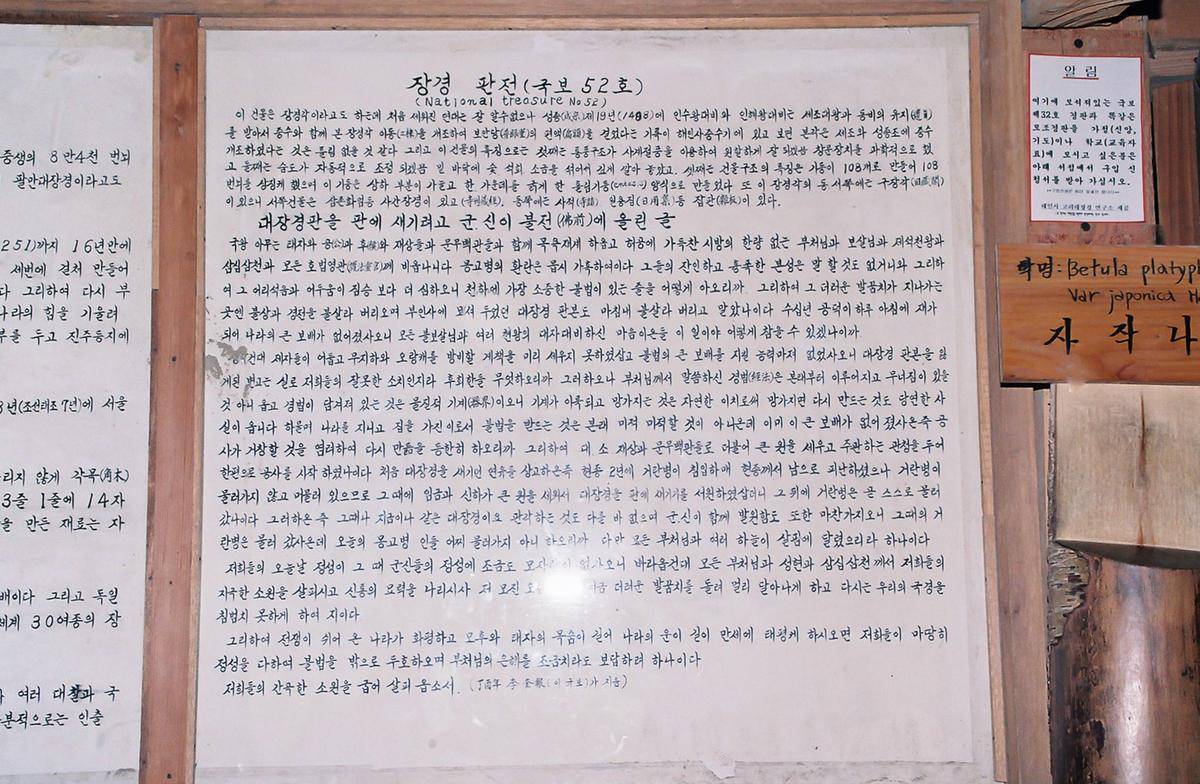 중생의 8만4천 번뇌
팔만대장경이라고도
251)까지 16년만에
세번에 걸쳐 만들어
다 그리하여 다시 부
나라의 힘을 기울려
부를 두고 진주등지에
8년(조선태조 7년)에 서울
리지 않게 각목(角木)
3줄 1줄에 14자
을 만든 재료는 자
배이다 그리고 독일
세계 30여종의 장
여러 대찰과 국
부분적으로는 인출
장경 판전(국보 52호)
(National treasure No 52)
이 건물은 장경각이라고도 하는데 처음 세워진 연대는 잘 알수없으나 성종(成宗)제19년(1488)에 인수왕대비와 인혜왕대비는 세조대왕과 동비의 유지(遺旨)
를 받아서 중수와 함께 본 장경각 이동(二棟)을 개조하여 보안당(普眼堂)의 편액(扁額)을 걸었다는 기록이 해인사중수기에 있고 보면 본각은 세조와 성종조에 중수
개조하였다는 것은 틀림 없을 것 같다 그리고 이 건물의 특징으로는 첫째는 통풍구조가 사계절풍을 이용하여 원활하게 잘 되겠끔 창문장치를 과학적으로 했
고 둘째는 습도가 자동적으로 조정 되겠끔 땅 바닥에 숯 석회 소금을 섞어서 깊게 깔아 놓았고, 셋째는 건물구조의 특징은 기둥이 108개로 만들어 108
번뇌를 상징케 했으며 이 기둥은 상하 부분이 가늘고 한 가운데를 굵게 한 옹림기둥 양식으로 만들었다 또 이 장경각의 동 서쪽에는 구장각(旧藏閣)
이 있으나 서쪽건물은 삼본화엄경 사간장경이 있고(寺刊藏經), 동쪽에는 사적(寺蹟) 일용집(日用集)등 잡판(雜板)이 있다.
대장경판을 판에 새기려고 군 신이 불전(佛前)에 올린 글
국왕 아무는 태자와 공(公)과 후(侯)와 재상들과 문무백관들과 함께 목욕재계 하옵고 허공에 가득찬 시방의 한량 없는 부처님과 보살님과 제석천왕과
삼십삼천과 모든 호법영관(護法靈官)께 비옵나니다 몽고병의 환란은 몹시 가혹하여이다 그들의 잔인하고 흉폭한 본성은 말 할것도 없거니와 그리하
여 그 어리석음과 어두움이 짐승 보다 더 심하오니 천하에 가장 소중한 불법이 있는 줄을 어떻게 아오리까. 그리하여 그 더러운 발꿈치가 지나가는
곳엔 불상과 경전을 불살라 버리오며 부인사에 모셔 두었던 대장경 판본도 마침내 불살라 버리고 말았나이다 수십년 공덕이 하루 아침에 재가
되어 나라의 큰 보배가 없어졌사오니 모든 불보살님과 여러 천왕의 대자대비하신 마음이온들 이 일이야 어떻게 참을 수 있겠나이까
건대 제자들이 어둡고 무지하와 오랑캐를 방비할 계책을 미리 세우지 못하였삽고 불법의 큰 보배를 지킬 능력마저 없었사오니 대장경 판본을 잃
게된 변고는 실로 저희들의 잘못한 소치인지라 후회한들 무엇하오리까 그러하오나 부처님께서 말씀하신 경법(經法)은 본래부터 이루어지고 무너짐이 있을
것 아니 옵고 경법이 담겨져 있는 것은 물질적 기계(器界)이오니 기계가 이룩되고 망가지는 것은 자연한 이치로써 망가지면 다시 만드는 것도 당연한 사
실이 옵니다 하물며 나라를 지니고 집을 가진이로서 불법을 받드는 것은 본래 미적 미적할 것이 아니온데 이미 이 큰 보배가 없어 졌사온즉 공
사가 거창할 것을 염려하여 다시 만듦을 등한히 하오리까 그리하여 대 소 재상과 문무백관들로 더불어 큰 원을 세우고 주관하는 관청을 두어
한편으로 공사를 시작 하였나이다 처음 대장경을 새기던 연유를 상고하온즉 현종 2년에 거란병이 침입하매 현종께서 남으로 피난하셨으나 거란병이
물러가지 않고 머물러 있으므로 그 때에 임금과 신하가 큰 원을 세워서 대장경을 판에 새기기를 서원하였삽더니 그 뒤에 거란병은 곧 스스로 물러
갔나이다 그러하온 즉 그때나 지금이나 같은 대장경이요 판각하는 것도 다를 바 없으며 군.신이 함께 발원함도 또한 마찬가지오니 그때의 거
란병은 물러 갔사온데 오늘의 몽고병 인들 어찌 물러가지 아니 하오리까 다만 모든 부처님과 여러 하늘이 살핌에 달렸으리라 하나이다
저희들의 오늘날 정성이 그 때 군신들의 정성에 조금도 모자람이 없사오니 바라옵건대 모든 부처님과 성현과 삼십삼천 께서 저희들의
지극한 소원을 살피시고 신통의 묘력을 나리시사 저 모진 더러운 발꿈치를 돌려 멀리 달아나게 하고 다시는 우리의 국경을
침범치 못하게 하여 지이다
그리하여 전쟁이 쉬어 온 나라가 화평하고 모후와 태자의 목숨이 길어 나라의 운이 길이 만세에 태평케 하시오면 저희들이 마땅히
정성을 다하여 불법을 밖으로 두호하오며 부처님의 은혜를 조금치라도 보답하려 하나이다
저희들의 간곡한 소원을 굽어 살펴 옵소서. (丁酉年 李奎報(이규보)가 지음)
알 림
여기에 모셔져있는 국보
제32호 경판과 똑같은
모조경판을 가정(신앙,
기도)이나 학교(교육자
료)에 모시고 싶은분은
아래 서점에서 구입 신
청서를 받아 가십시오.
해인사 고려대장경 연구소 제공
학명: Betula platyph
Var japonica H
자 작 나